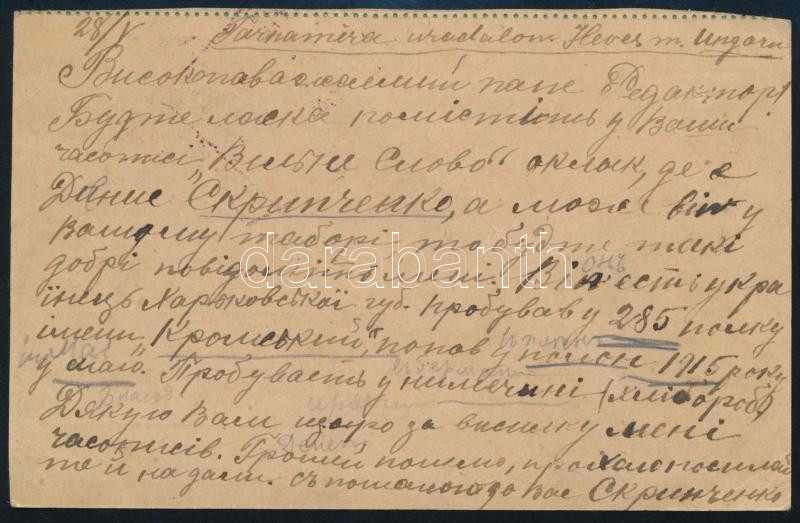 28/V Tarnaméra uradalom Heves m. Ungarn
Високоповажаємий пане Редакторі
Будте ласка помістіть у Вашій
часописі „Вільне Слово" оклик, де є
Данис Скрипченко, а може він у
вашому таборі, то будте такі
добрі повідомітъ мені. Він есть укра
онъ
їнець Харьковської губ. пробував у 285 полку
імени „Кромський", попов у полон 1915 року
у маю. Пробувасть у нимечині (хлібороб)
Дякую Вам щиро за висилку мені
часописів. Гроший пошлю, прохаю посилай
те й на далі. Съ пошаною до Вас Скрипченко
darabanth.com